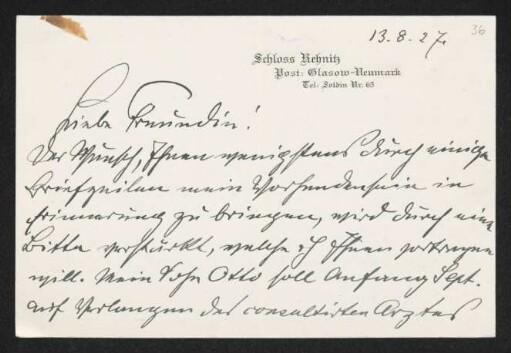 13.8.27.
36
Schloss Rehnitz
Post: Glasow-Neumark
Tel: Soldin Nr. 65
Liebe Freundin!
Der Wunsch, Ihnen wenigstens durch einige
Briefzeilen mein Vorhandensein in
Erinnerung zu bringen, wird durch eine
Bitte verstärkt, welche ich Ihnen vortragen
will. Mein Sohn Otto soll Anfang Sept.
auf Verlangen des consultirten Arztes